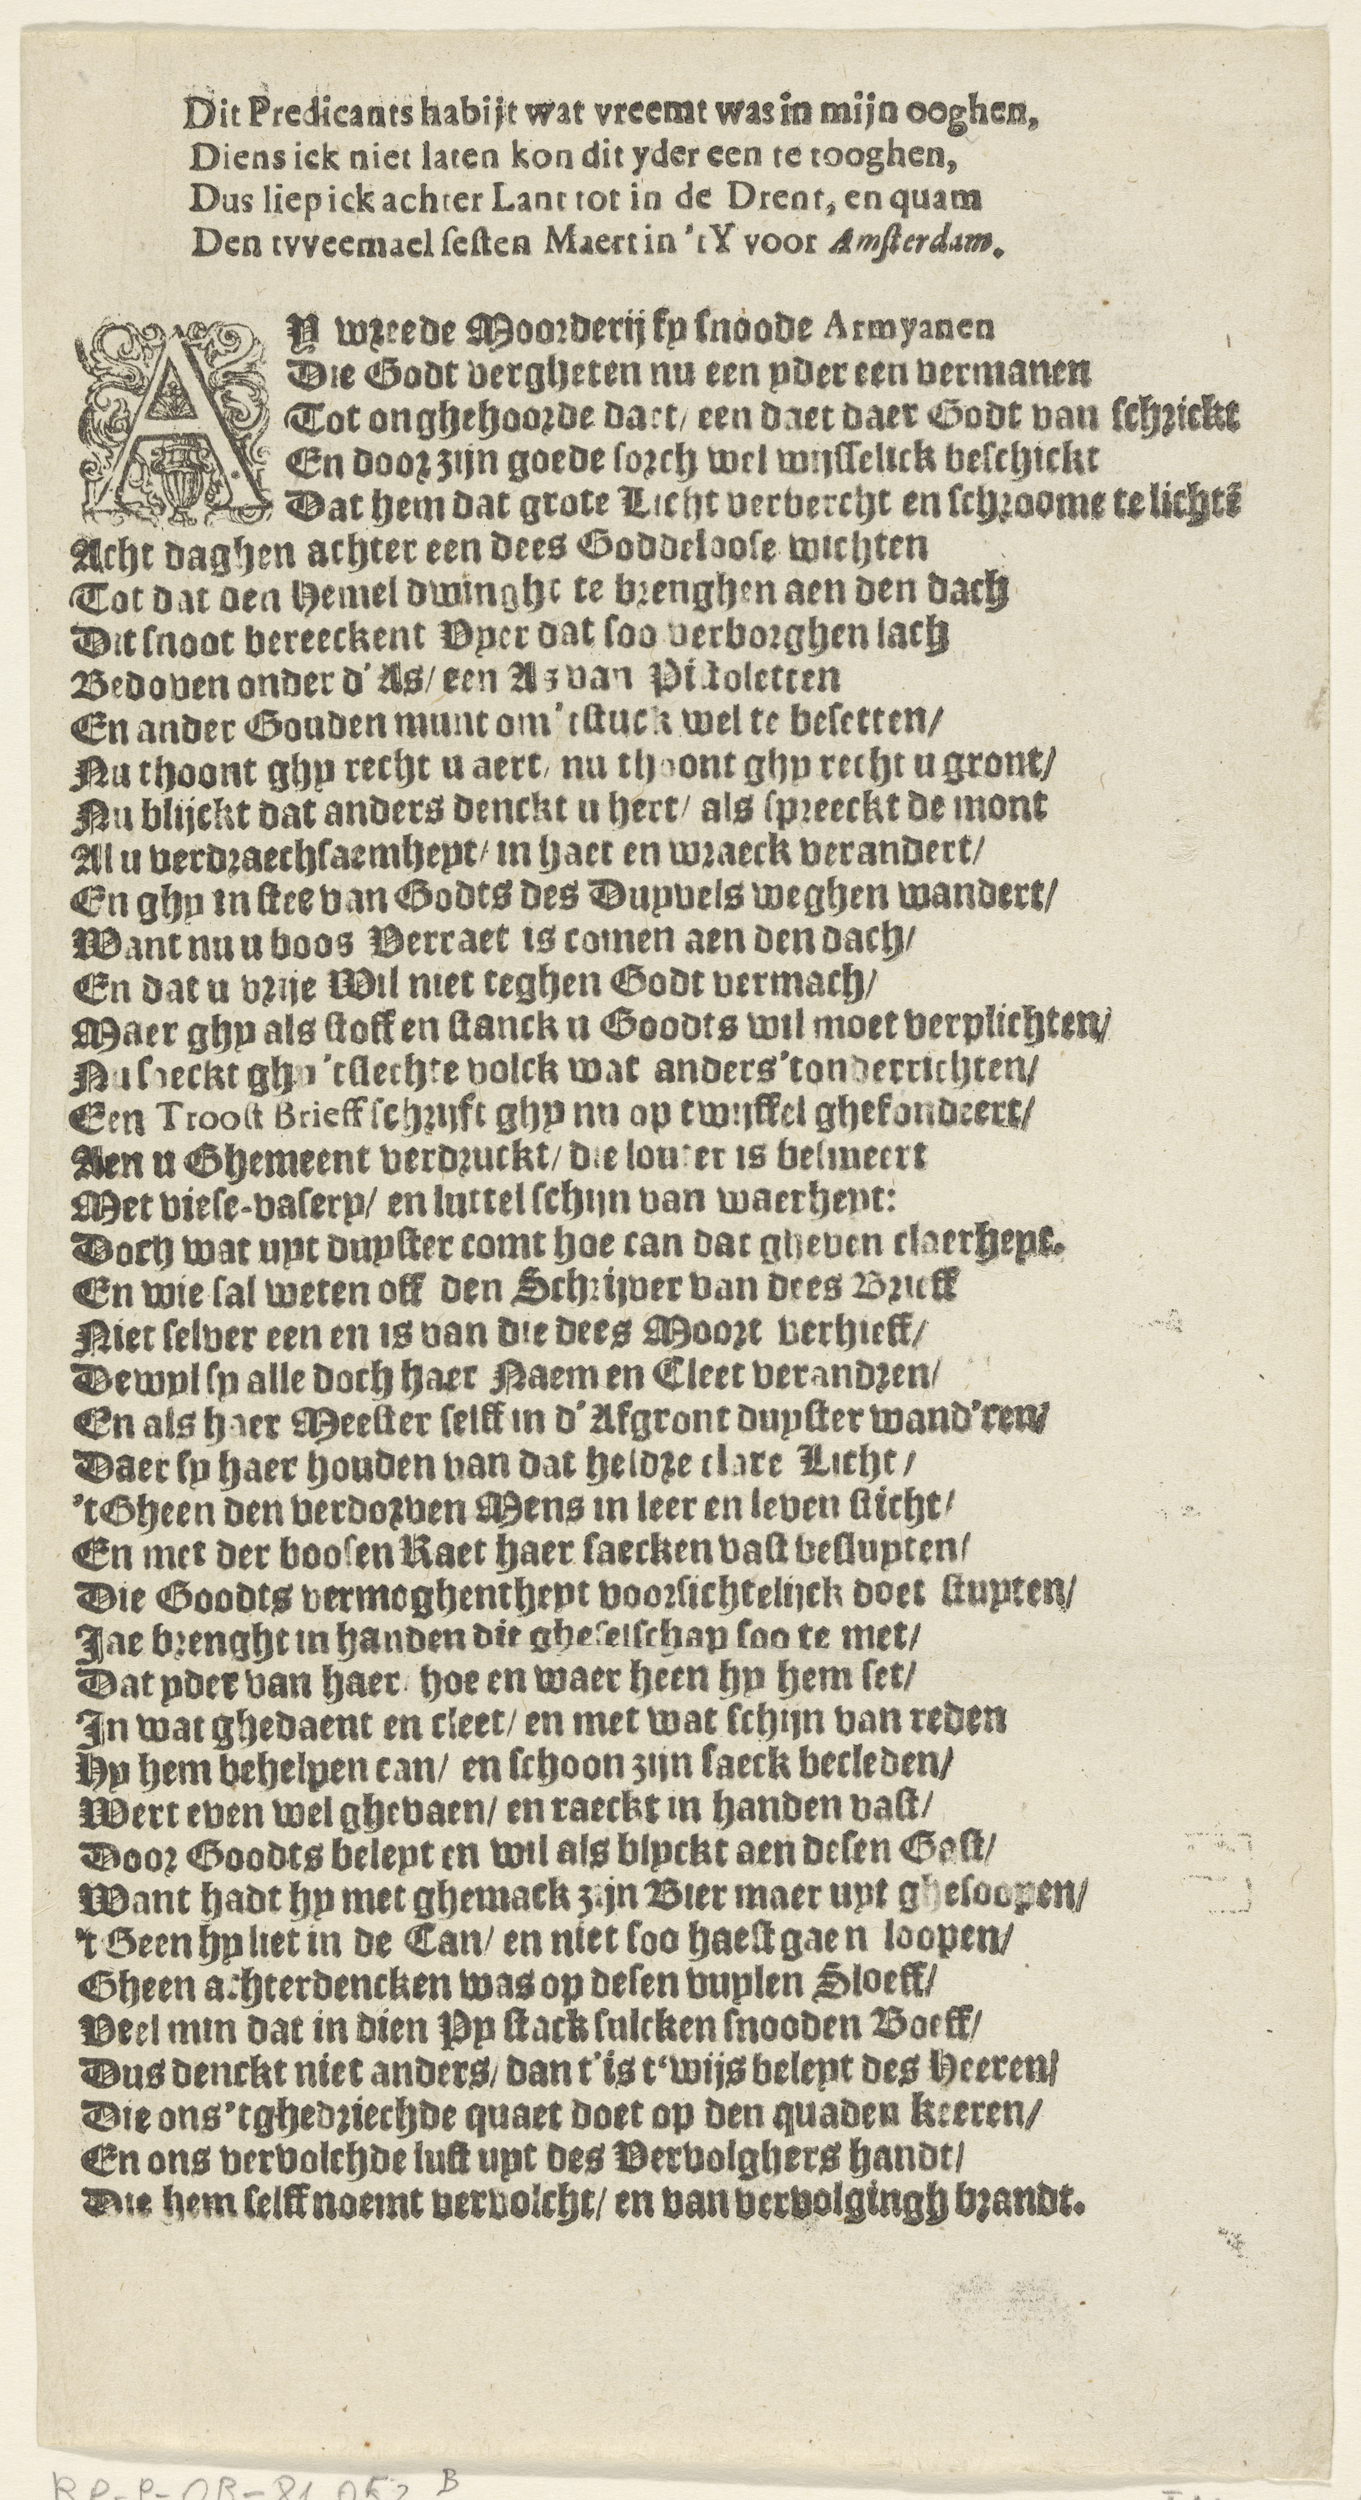 Dit Predicants habijt wat vreemt was in mijn ooghen,
Diens ick niet laten kon dit yder een te tooghen,
Dus liep ick achter Lant tot in de Drent, en quam
Den tvveemael sesten Maert in 'tY voor Amsterdam.
AY wreede Moorderij sy snoode Armyanen
Die Godt vergheten nu een yder een vermanen
Tot onghehoorde daet/ een daet daer Godt van schrickt
En door zijn goede sorch wel wijsselick beschickt
Dat hem dat grote Licht verbercht en schroome te lichtē
Acht daghen achter een dees Goddeloose wichten
Tot dat den Hemel dwinght te brenghen aen den dach
Dit snoot bereeckent Vyer dat soo verborghen lach
Bedoven onder d'As/ een As van Pistoletten
En ander Gouden munt om 'tstuck wel te besetten/
Nu thoont ghy recht u aert/ nu thoont ghy recht u gront/
Nu blijckt dat anders denckt u hert/ als spreeckt de mont
Al u verdraechsaemheyt/ in haet en wraeck verandert/
En ghy in stee van Godts des Duyvels weghen wandert/
Want nu u boos Verraet is comen aen den dach/
En dat u vrije Wil niet teghen Godt vermach/
Maer ghy als stoff en stanck u Goodts wil moet verplichten/
Nu soeckt ghy 'tslechte volck wat anders 'tonderrichten/
Een Troost Brieff schrijft ghy nu op twijffel ghefondeert/
Aen u Ghemeent verdruckt/ die louter is besmeert
Met viese-vasery/ en luttel schijn van waerheyt:
Doch wat uyt duyster comt hoe can dat gheven claerheyt.
En wie sal weten off den Schrijver van dees Brieff
Niet selver een en is van die dees Moort verhieff/
Dewyl sy alle doch haer Naem en Cleet verandren/
En als haer Meester selff in d'Afgront duyster wand'ren/
Daer sy haer houden van dat heldre clare Licht/
'tGheen den verdorven Mens in leer en leven sticht/
En met der boosen Raet haer saecken vast besluyten/
Die Goodts vermoghentheyt voorsichtelijck doet stuyten/
Jae brenght in handen die gheselschap soo te met/
Dat yder van haer/ hoe en waer heen hy hem set/
In wat ghedaent en cleet/ en met wat schijn van reden
Hy hem behelpen can/ en schoon zijn saeck becleden/
Wert even wel ghevaen/ en raeckt in handen vast/
Door Goodts beleyt en wil als blyckt aen desen Gast/
Want hadt hy met ghemack zijn Bier maer uyt ghesoopen/
't Geen hy liet in de Can/ en niet soo haest gaen loopen/
Gheen achterdencken was op desen vuylen Sloeff/
Veel min dat in dien Py stack sulcken snooden Boeff/
Dus denckt niet anders/ dan t'is t'wijs beleyt des Heeren/
Die ons 'tghedriechde quaet doet op den quaden keeren/
En ons vervolchde lust uyt des Vervolghers handt/
Die hem selff noemt vervolcht/ en van vervolgingh brandt.
RP-P-OB-81.052 B